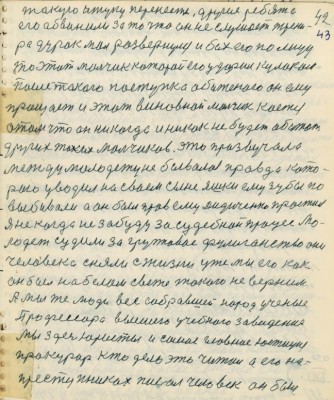 такую штуку перенести, другие ребята
его обвинили за то что он не слушает трене-
ра дурак мол развернулся и бах его по лицу
42
43
то этот мальчик которой его ударил кулаком
После такого поступка обиженого он ему
прощает и этот виновной мальчик кается
о том что он никогда и никак не будет обижат
других таких мальчиков. это прозвучала
между молодежу не бывалоя правда кото-
рого уводил на своем сыне яшки ему зубы по
выбивали а он был прав ему индиченко простил
я никогда не забуду за судебной процес Мо-
лодеж судили за групавое фулиганство они
человека сняли с жизни уже мы его как
он был на белом свете такого не вернем
А мы же люди вес собравшей народ ученые
Профессора высшего учебного заведения
Мы здеся юристы и самое главное юстиции
прокурар кто дело это читал а его на-
преступниках писал человек он был